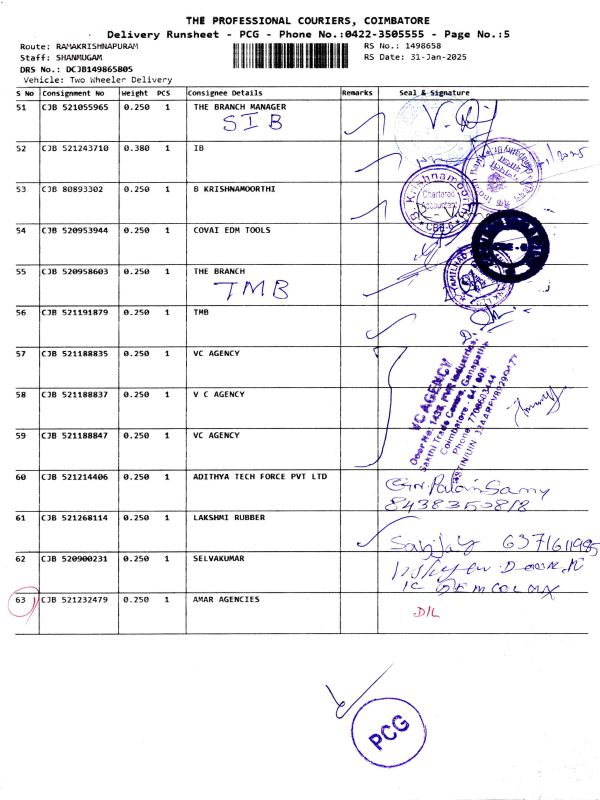 THE PROFESSIONAL COURIERS, COIMBATORE
Delivery Runsheet - PCG - Phone No.:0422-3505555 - Page No.:5
Route: RAMAKRISHNAPURAM RS No.: 1498658
Staff: SHANMUGAM RS Date: 31-Jan-2025
DRS No.: DCJB149865805
Vehicle: Two Wheeler Delivery
S No Consignment No Weight PCS Consignee Details Remarks Seal & Signature
51 CJB 521055965 0.250 1 THE BRANCH MANAGER
SIB
52 CJB 521243710 0.380 1 IB
53 CJB 80893302 0.250 1 B KRISHNAMOORTHI
B. Krishnamoorthi
Chartered
Accountant
CBE-6
54 CJB 520953944 0.250 1 COVAI EDM TOOLS
CBE-6
55 CJB 520958603 0.250 1 THE BRANCH
TMB
TAMILNAD
56 CJB 521191879 0.250 1 TMB
57 CJB 521188835 0.250 1 VC AGENCY
58 CJB 521188837 0.250 1 V C AGENCY
59 CJB 521188847 0.250 1 VC AGENCY
VC AGENCY
Door No: 1438, PVR Industries,
Sakthi Trade Centre, Ganapathy,
Coimbatore - 641 006
60 CJB 521214406 0.250 1 ADITHYA TECH FORCE PVT LTD
61 CJB 521268114 0.250 1 LAKSHMI RUBBER
62 CJB 520900231 0.250 1 SELVAKUMAR
63 CJB 521232479 0.250 1 AMAR AGENCIES
D/L
PCG